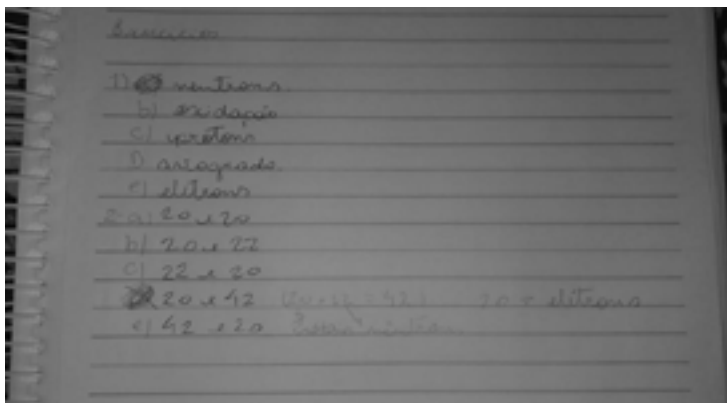 Exercicios
1) neutrons.
b) oxidação
c) protons
D) arsogrado.
e) elétrons
2-a) 20 e 20
b) 20 e 22
c) 22 e 20
20 e 42 20 e elétrons
e) 42 e 20